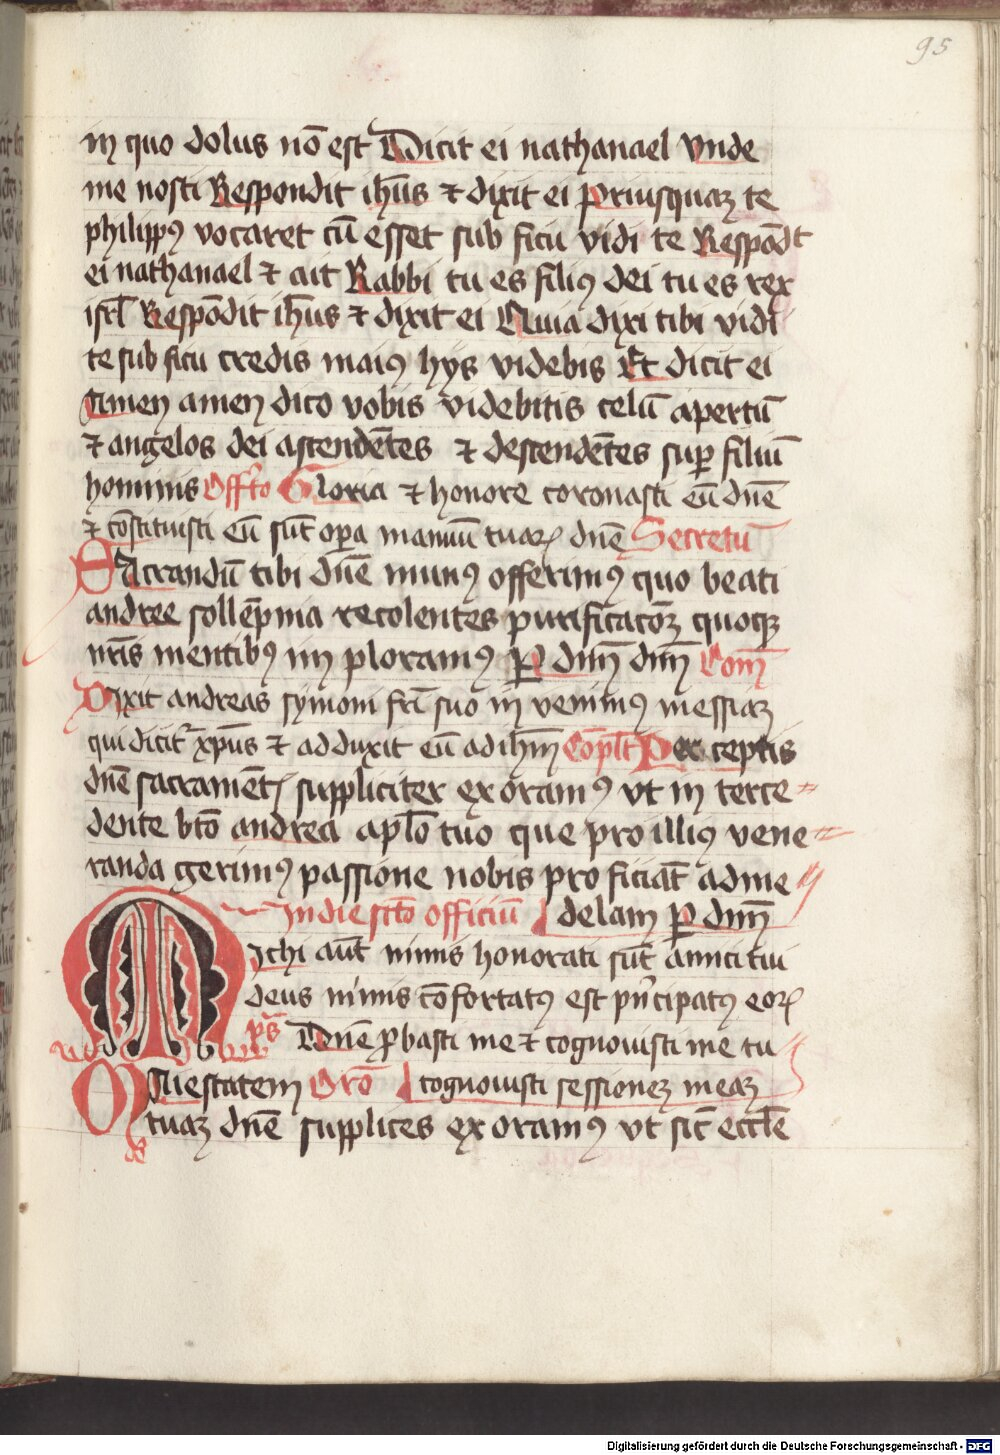 95
in quo dolus nō est Dicit ei nathanael Vnde
me nosti Respondit ih̄us ⁊ dixit ei Priusquaꝫ te
philippꝰ vocaret cū esset sub ficu vidi te Respōdt
ei nathanael ⁊ ait Rabbi tu es filiꝰ dei tu es rex
isrl̄ Respōdit ih̄us ⁊ dixit ei Quia dixi tibi vidi
te sub ficu credis maiꝰ hys videbis Et dicit ei
Amen amen dico vobis videbitis celū apertū
⁊ angelos dei ascendētes ⁊ descendētes suꝑ filiū
hominis Offr̄o Gloria ⁊ honore coronasti eū dn̄e
⁊ cōstituisti eū sup̄ oꝑa manuū tuaꝝ dn̄e Secretū
SAcrandū tibi dn̄e munꝰ offerimꝰ quo beati
andree sollēpnia recolentes purificatōꝫ quoqꝫ
nr̄is mentibꝰ im ploramꝰ P̲ dnm̄ dnm̄ Com̄
Dixit andreas symoni fr̄i suo in venimꝰ messiaꝫ
qui dicitᷣ xp̄us ⁊ adduxit eū ad ih̄m Cōpl̄t Per ceptis
dn̄e sacramēt suppliciter ex oramꝰ vt in terce
dente bt̄o andrea apl̄o tuo que pro illiꝰ vene
randa gerimꝰ passione nobis pro ficiāt ad me
In die sct̄o officiū delam P̲ dnm̄
Michi aūt nimis honorati sūt amici tui
deus nimis cōfortatꝰ est pn̄cipatꝰ eoꝝ
ps̄ Dn̄e ꝓbasti me ⁊ cognouisti me tu
MAiestatem Orō cognouisti sessioneꝫ meaꝫ
tuaꝫ dn̄e supplices ex oramꝰ vt sic̄ eccl̄e
Digitalisierung gefördert durch die Deutsche Forschungsgemeinschaft - DFG